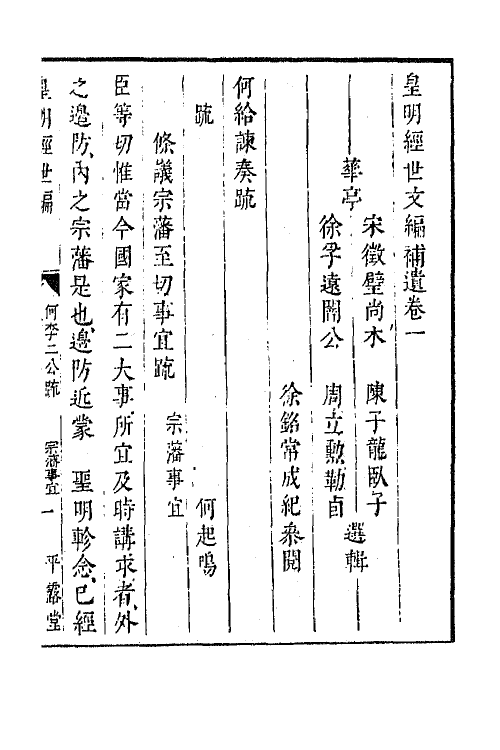 皇明經世文編補遺卷一
華亭
宋徵璧尚木
陳子龍臥子
徐孚遠闇公
周立勲勒卣
選輯
徐銘常成紀叅閱
何給諫奏疏
疏
何起鳴
條議宗藩至切事宜疏
宗藩事宜
臣等切惟當今國家有二大事所宜及時講求者、外
之邊防、內之宗藩是也、邊防近蒙 聖明軫念、已經
皇明經世編
何李二公疏
宗藩事宜
一
平露堂